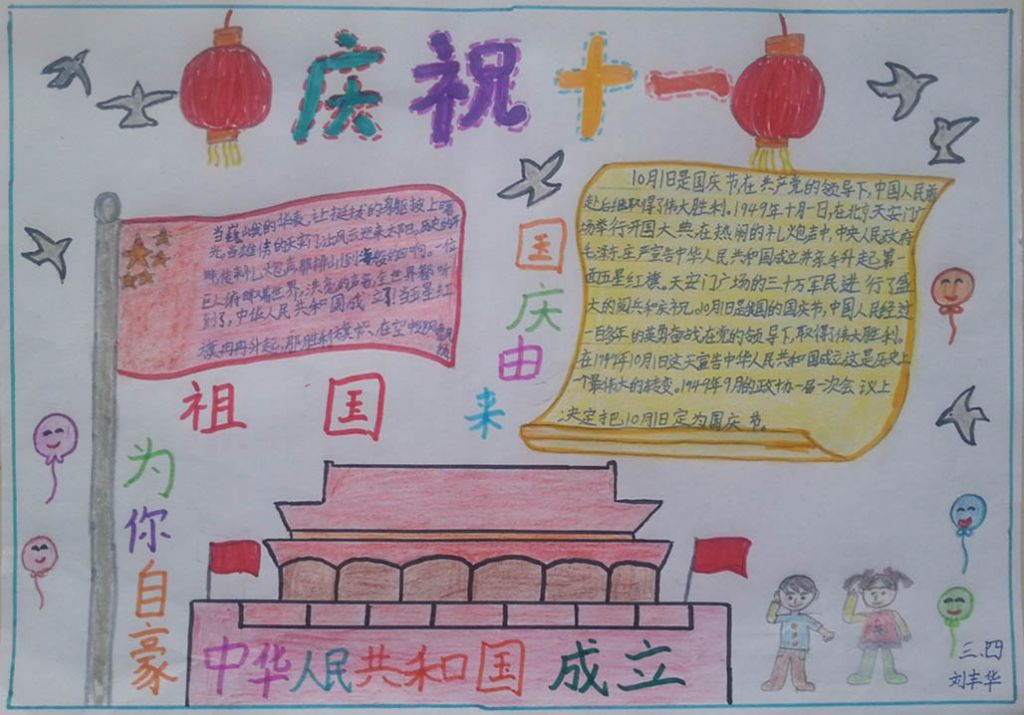 庆祝十一
当巍峨的华表,让挺拔的身躯披上曙
光,当雄伟的天安门,让风云迎来太阳,历史的
一位
巨人俯瞰着世界,洪亮的声音,全世界都听
到了,中华人民共和国成立了!当五星红
旗冉冉升起,那胜利旗帜,在空中
祖国
为你自豪
国庆由来
10月1日是国庆节,在共产党的领导下,中国人民前
赴后继取得了伟大胜利。1949年十月一日,在北京天安门广
场举行开国大典,在热闹的礼炮声中,中央人民政府
毛泽东庄严宣告中华人民共和国成立并亲手升起第一
面五星红旗。天安门广场的三十万军民进行了盛
大的阅兵和庆祝。10月1日是我国的国庆节,中国人民经过一
百多年的英勇奋战在党的领导下,取得了伟大胜利。
在1949年10月1日这天宣告中华人民共和国成立这是历史上
一个最伟大的转变。1949年9月的政协一届一次会议上
决定把10月1日定为国庆节。
中华人民共和国成立
三.四
刘丰华